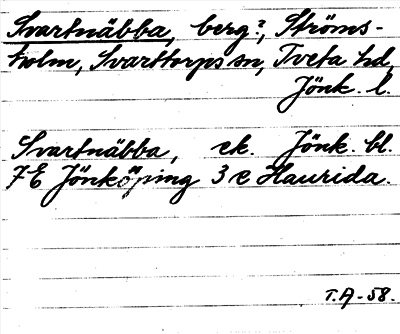 Svartnäbba, berg?, Ströms-
holm, Svarttorps sn, Tveta hd,
Jönk. l.
Svartnäbba, ek. Jönk. bl.
7E Jönköping 3 e Haurida.
T.A-58.